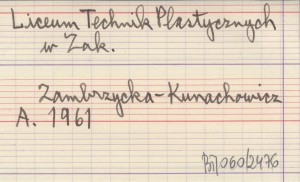 Liceum Technik Plastycznych
w Zak.
Zambrzycka-Kunachowicz
A. 1961
060/2476